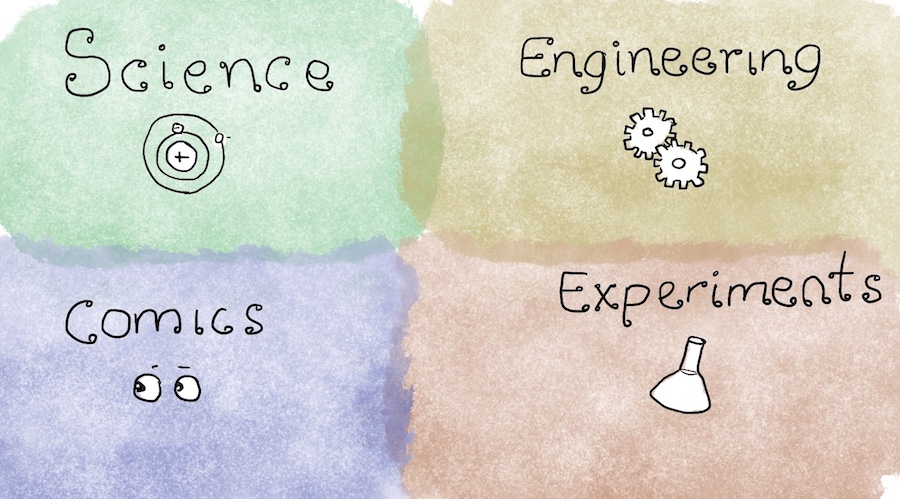 Science
Engineering
Comics
Experiments